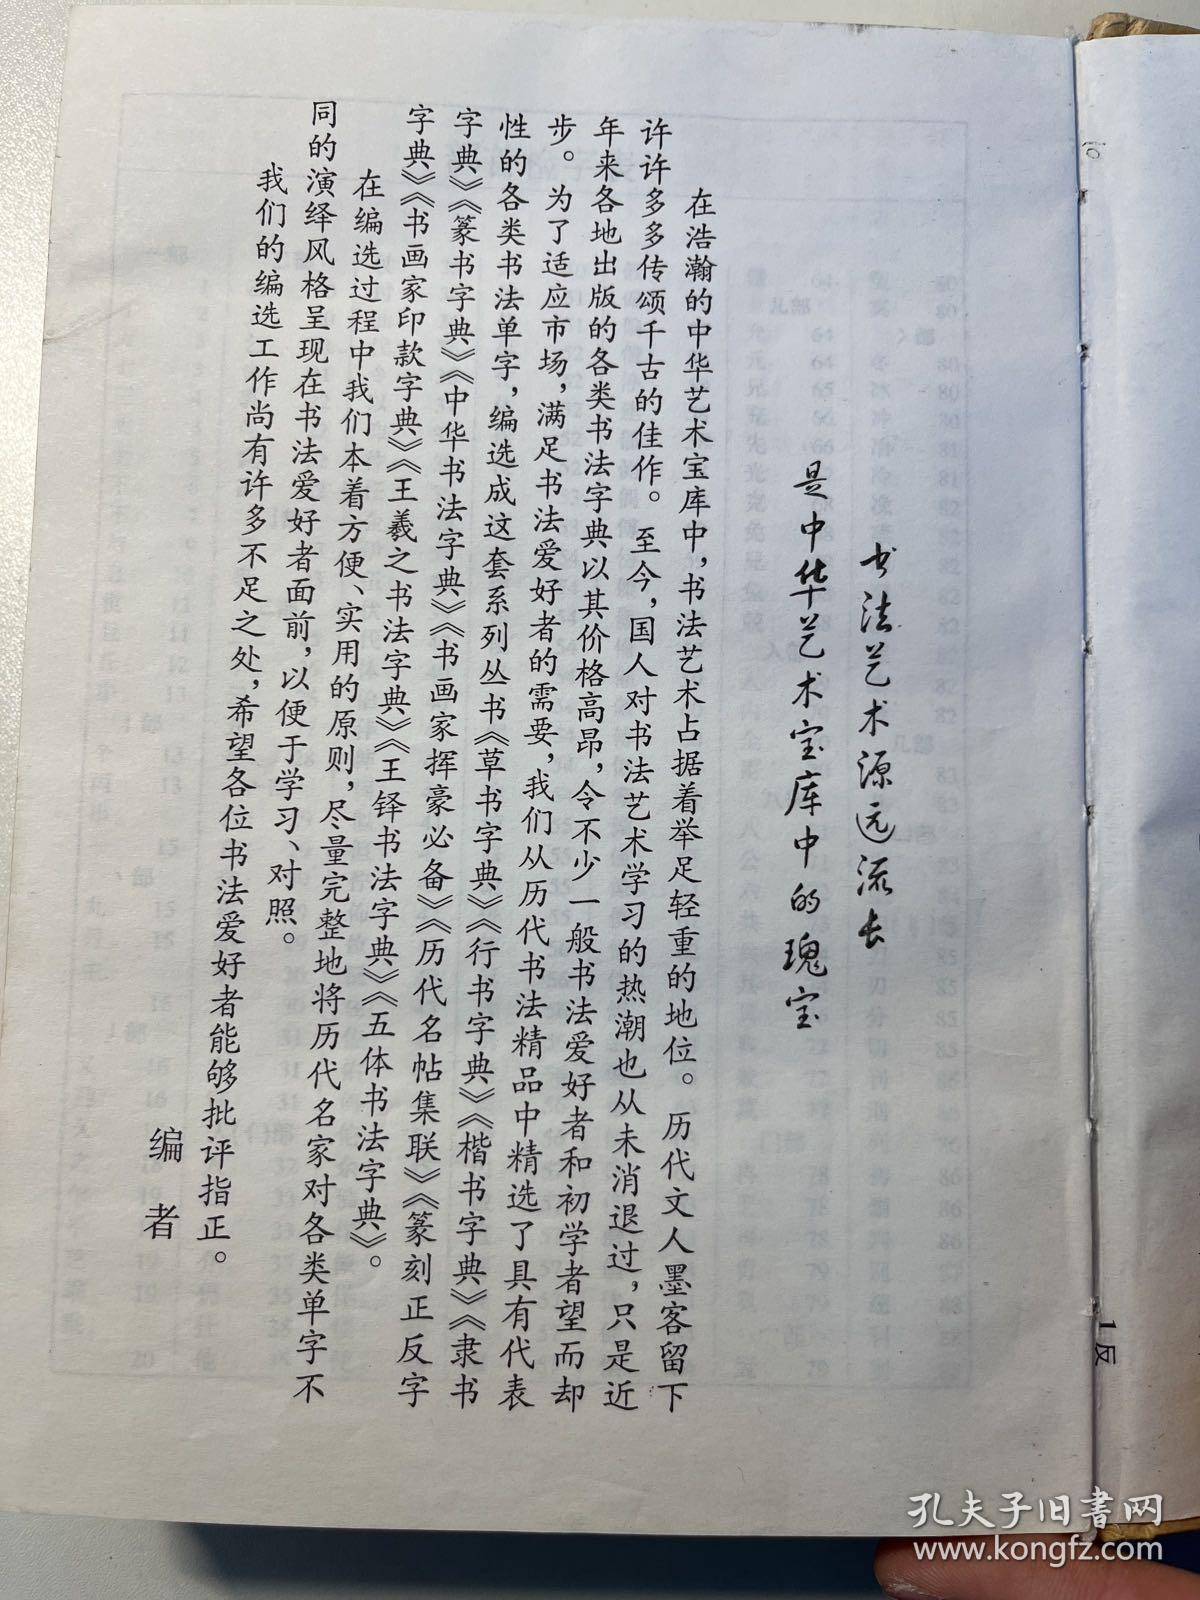 书法艺术源远流长
是中华艺术宝库中的瑰宝
在浩瀚的中华艺术宝库中，书法艺术占据着举足轻重的地位。历代文人墨客留下
许许多多传颂千古的佳作。至今，国人对书法艺术学习的热潮也从未消退过，只是近
年来各地出版的各类书法字典以其价格高昂，令不少一般书法爱好者和初学者望而却
步。为了适应市场，满足书法爱好者的需要，我们从历代书法精品中精选了具有代表
性的各类书法单字，编选成这套系列丛书《草书字典》《行书字典》《楷书字典》《隶书
字典》《篆书字典》《中华书法字典》《书画家挥豪必备》《历代名帖集联》《篆刻正反字
字典》《书画家印款字典》《王羲之书法字典》《王铎书法字典》《五体书法字典》。
在编选过程中我们本着方便、实用的原则，尽量完整地将历代名家对各类单字不
同的演绎风格呈现在书法爱好者面前，以便于学习、对照。
我们的编选工作尚有许多不足之处，希望各位书法爱好者能够批评指正。
编者
1反
孔夫子旧書网
www.kongfz.com